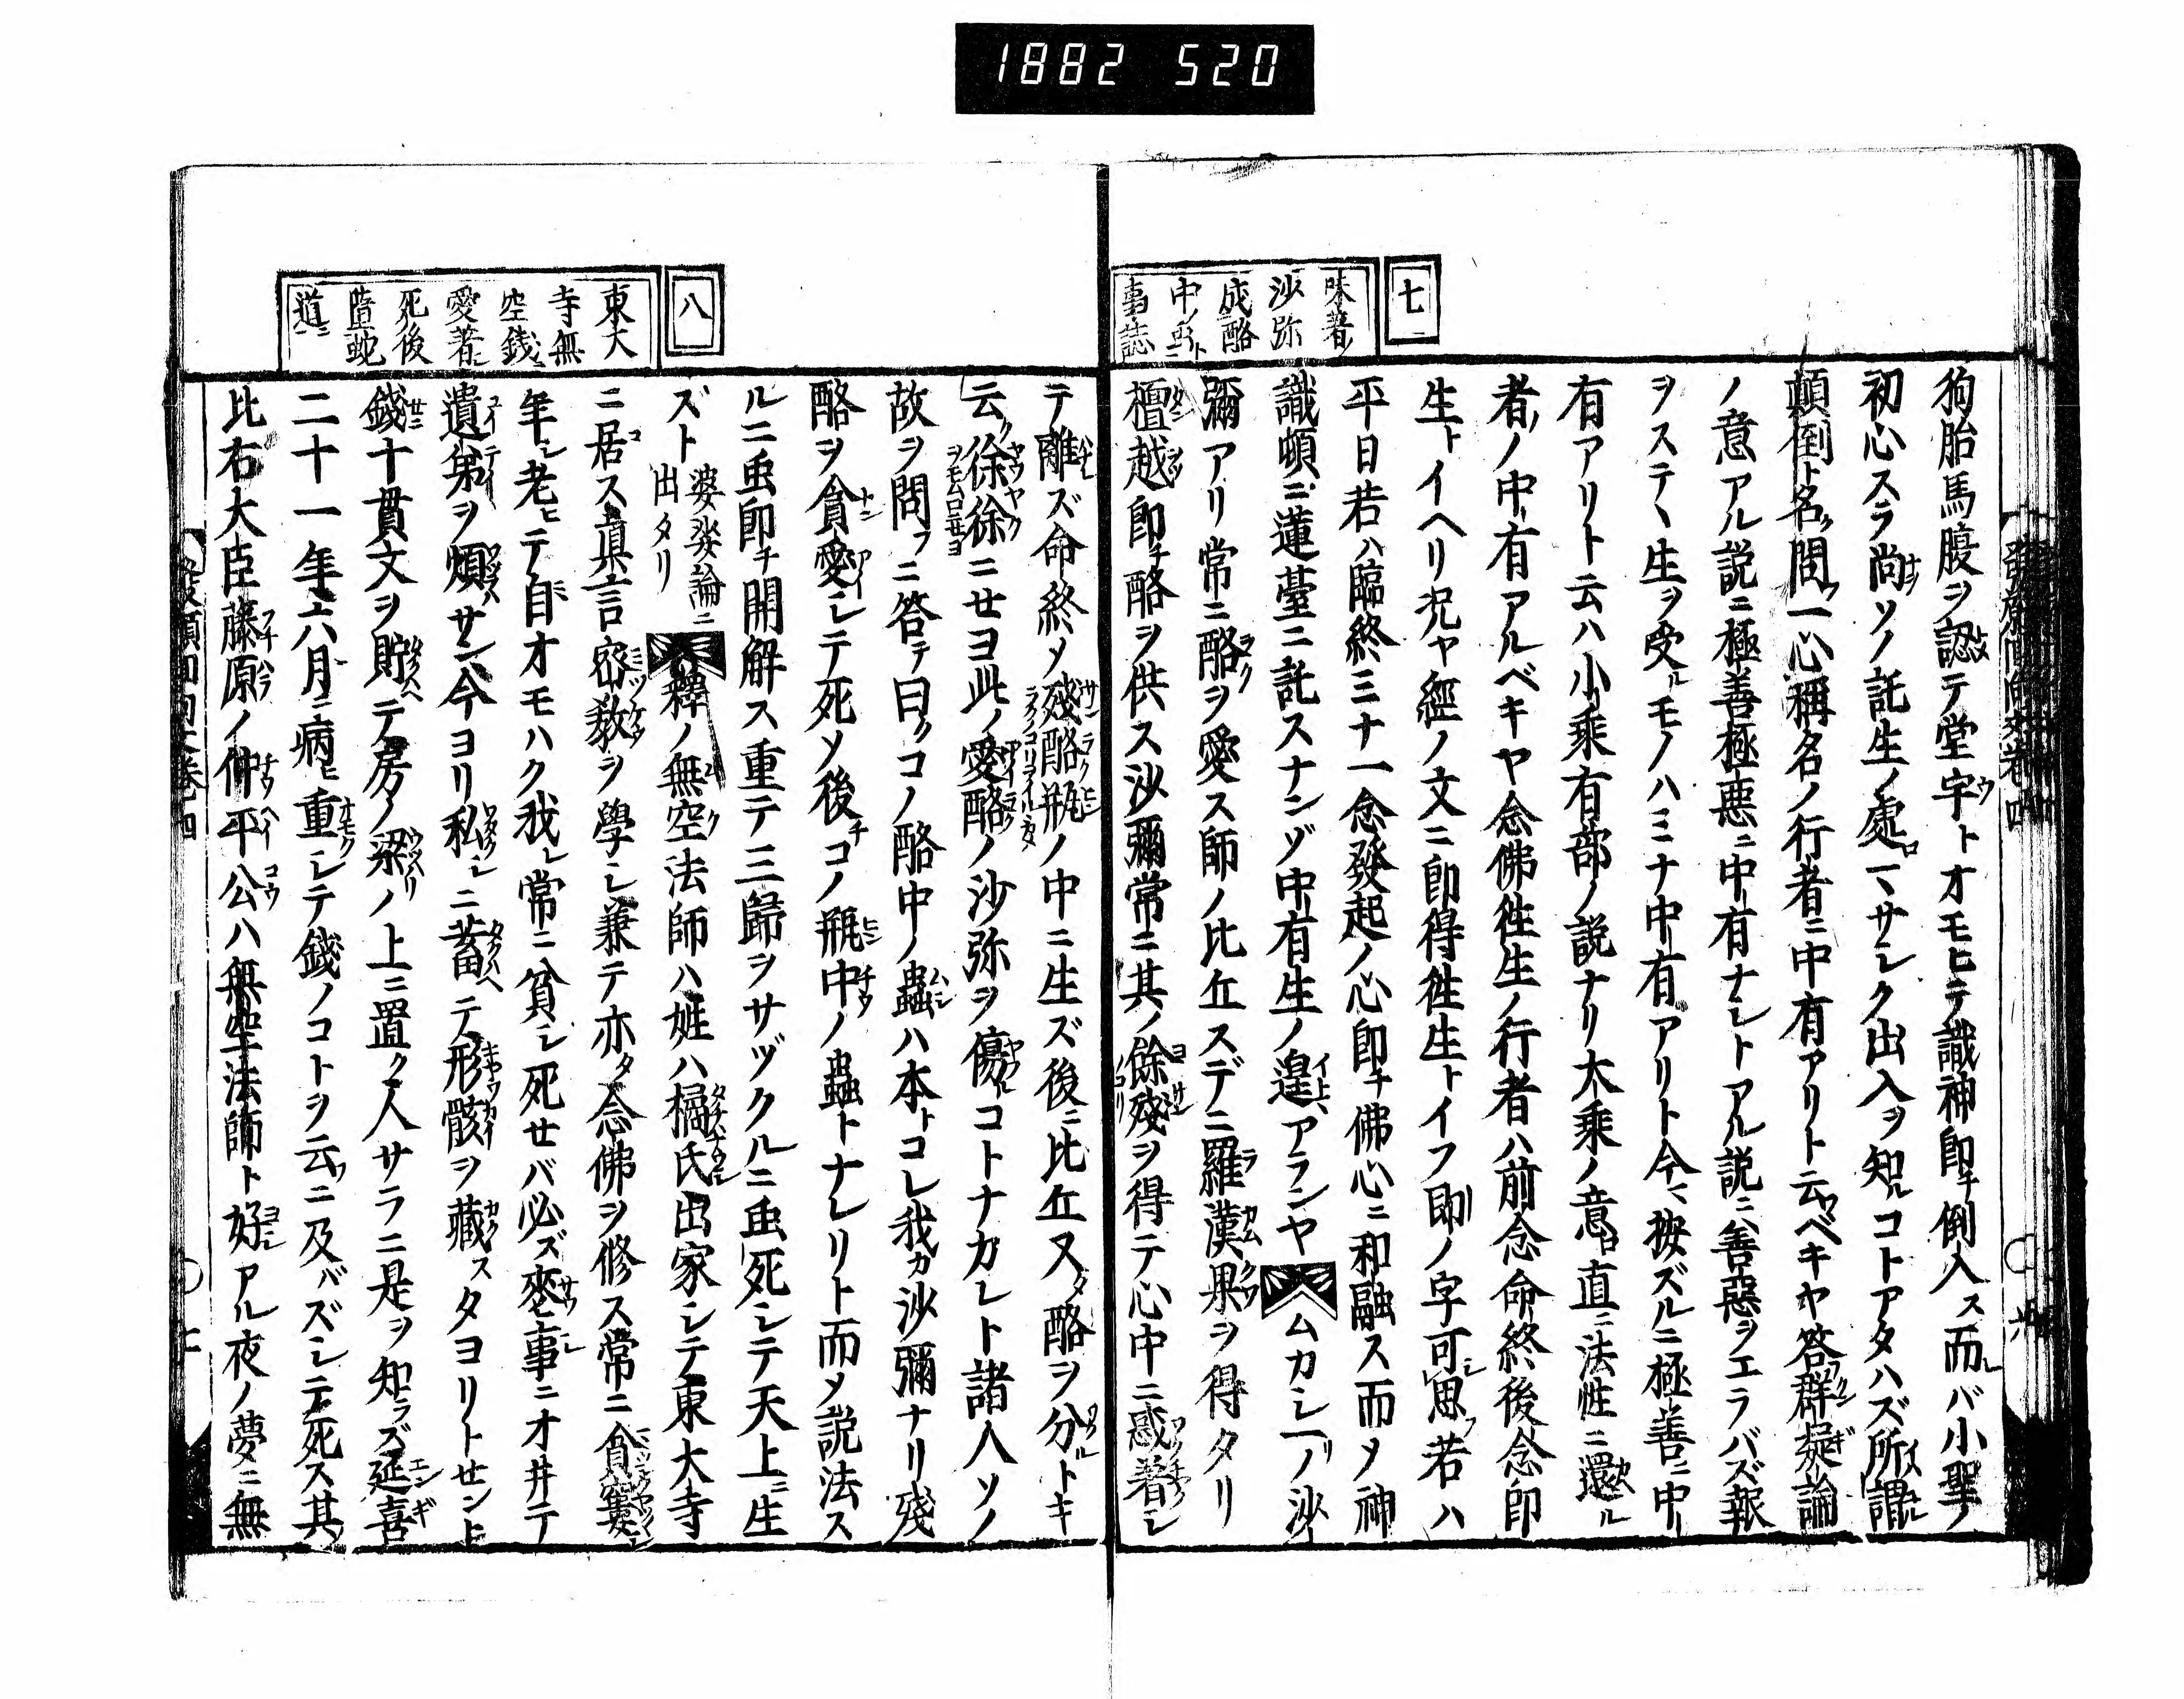 1882 520
七
味著ノ
沙弥
成酪
中ノ虫ト
事誌
狗胎馬腹ヲ認テ堂宇トオモヒテ識神即チ倒入ス而レバ小聖ノ
初心スラ尚ソノ託生ノ處ロ一ヽサシク出入ヲ知ルコトアタハズ所謂
顛倒ト名ク問フ一心稱名ノ行者ニ中有アリト云ベキヤ答群疑論
ノ意アル説ニ極善極悪ニ中有ナシトアル説ニハ善惡ヲエラバズ報
ヲステヽ生ヲ受ルモノハミナ中有アリト今ヽ按ズルニ極善ニ中
有アリト云ハ小乘有部ノ説ナリ大乘ノ意ハ直ニ法性ニ還ル
者ノ中有アルベキヤ念佛徃生ノ行者ハ前念命終後念即
生トイヘリ況ヤ經ノ文ニ即得徃生トイフ即ノ字可思フ若ハ
平日若ハ臨終ミナ一念發起ノ心即チ佛心ニ和融ス而メ神
識頓ニ蓮臺ニ託スナンゾ中有生ノ遑アランヤムカシ一リノ沙
彌アリ常ニ酪ヲ愛ス師ノ比丘スデニ羅漢果ヲ得タリ
檀越即チ酪ヲ供ス沙彌常ニ其ノ餘殘ヲ得テ心中ニ惑著シ
テ離ズ命終メ殘酪瓶ノ中ニ生ズ後ニ比丘又タ酪ヲ分ルトキ
云ク徐徐ニセヨ此ノ愛酪ノ沙弥ヲ傷ルコトナカレト諸人ソノ
故ヲ問フニ答テ曰クコノ酪中ノ蟲ハ本トコレ我カ沙彌ナリ殘
酪ヲ貪愛シテ死ソ後チコノ瓶中ノ蟲トナレリト而メ説法ス
ルニ虫即チ開解ス重テ三歸ヲサヅクルニ虫死シテ天上ニ生
ズト婆娑論ニ出タリ釋ノ無空法師ハ姓ハ橘氏出家シテ東大寺
ニ居ス眞言密教ヲ學シ兼テ亦タ念佛ヲ修ス常ニ貪窶
年シ老ヒテ自オモハク我レ常ニ貧シ死セバ必ズ喪事ニオ井テ
遺弟ヲ煩サン今ヨリ私シニ蓄ヘテ形骸ヲ藏スタヨリトセント
錢十貫文ヲ貯ヘテ房ノ梁ノ上ニ置ク人サラニ是ヲ知ラズ延喜
二十一年六月ニ病ヒ重シテ錢ノコトヲ云フニ及バズシテ死ス其ノ
比右大臣藤原ノ仲平公ハ無空法師ト好アル夜ノ夢ニ無
八
東大
寺無
空銭ニ
愛著シ
死後
墮蛇
道ニ